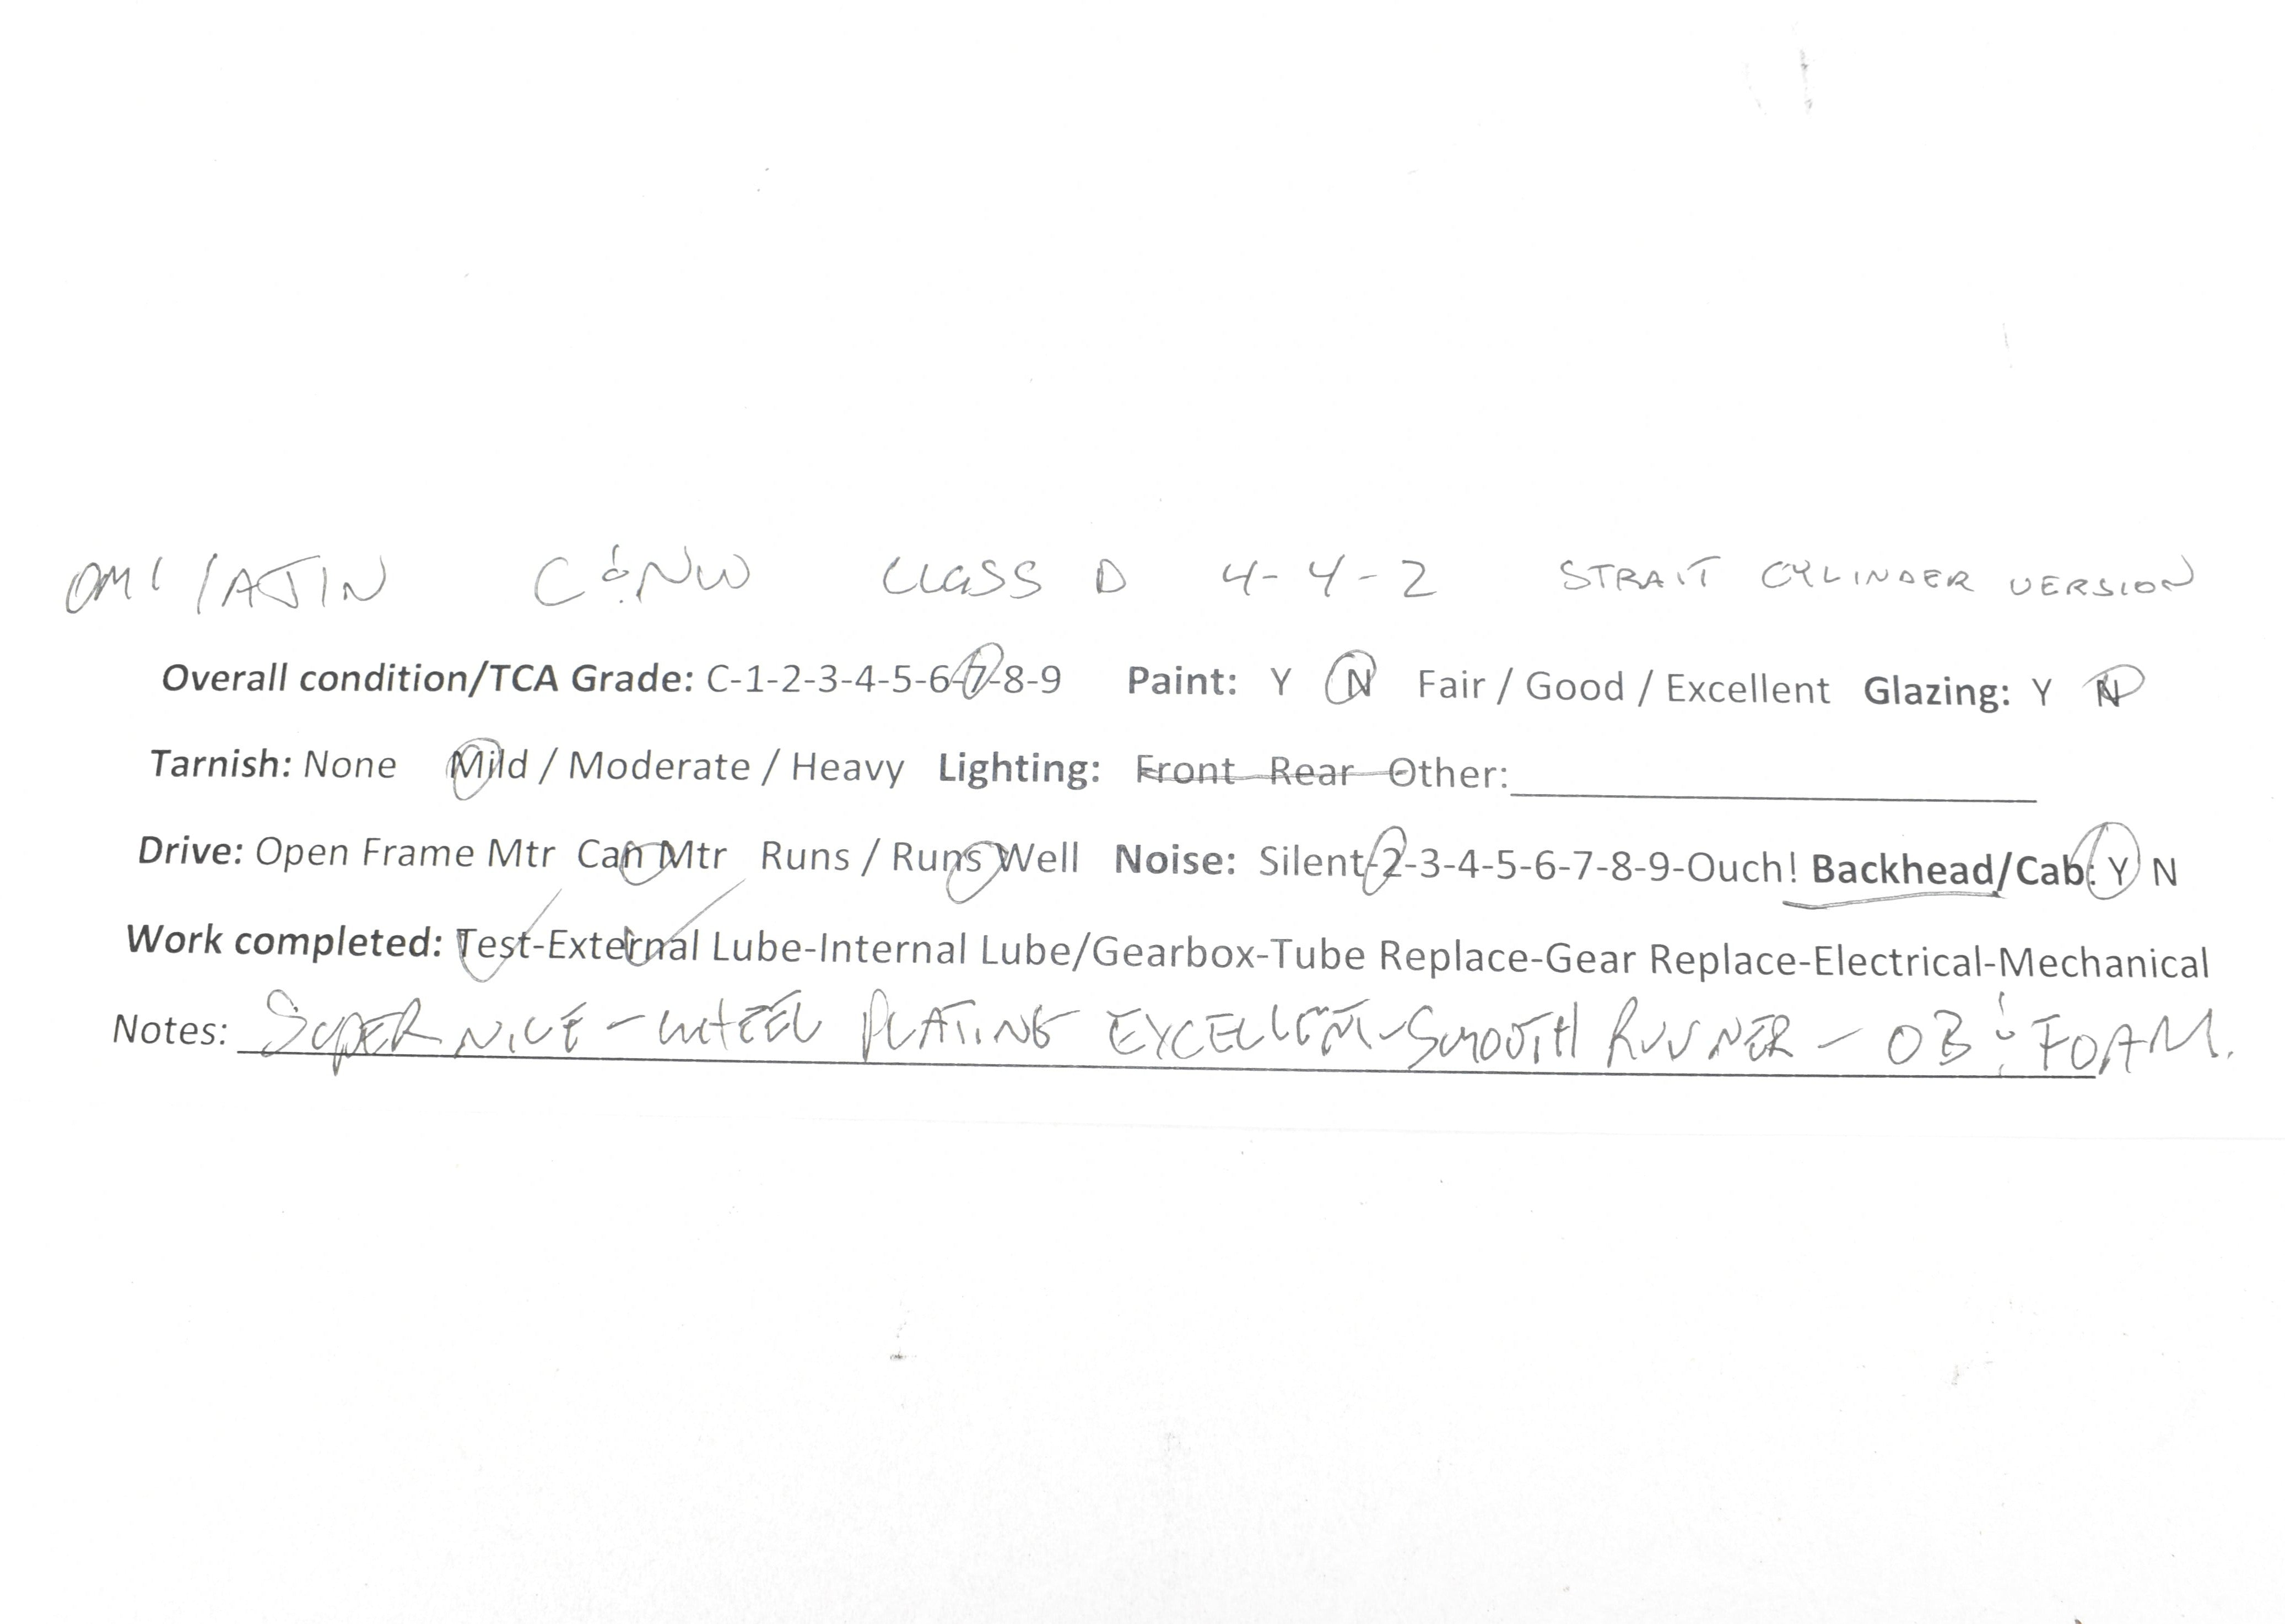 OMI/AJIN C&NW CLASS D 4-4-2 STRAIT CYLINDER VERSION
Overall condition/TCA Grade: C-1-2-3-4-5-6-7-8-9 Paint: Y N Fair / Good / Excellent Glazing: Y N
Tarnish: None Mild / Moderate / Heavy Lighting: Front Rear Other:
Drive: Open Frame Mtr Can Mtr Runs / Runs Well Noise: Silent-2-3-4-5-6-7-8-9-Ouch! Backhead/Cab: Y N
Work completed: Test-External Lube-Internal Lube/Gearbox-Tube Replace-Gear Replace-Electrical-Mechanical
Notes: SUPER NICE - WHEEL PLATING EXCELLENT - SMOOTH RUNNER - OB & FOAM.